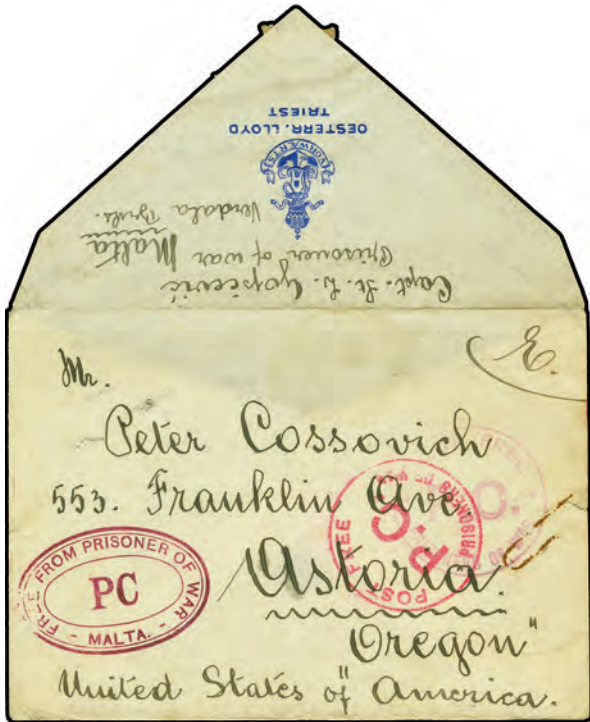 OESTERR. LLOYD
TRIEST
VORWAERTS
Capt. St. L. Gopcević
Prisoner of war Malta
Verdala
E.
Mr.
Peter Cossovich
553. Franklin Ave
Astoria.
Oregon"
United States of America.
FREE FROM PRISONER OF WAR
PC
- MALTA. -
POST FREE
PRISONERS OF WAR
P.
O.